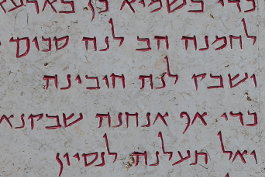 כדי בשמיא כן בארעא
לחמנה הב לנה סכום
ושבק לנה חובינה
כדי אף אנחנה שבקנא
ואל תעלנה לנסיון